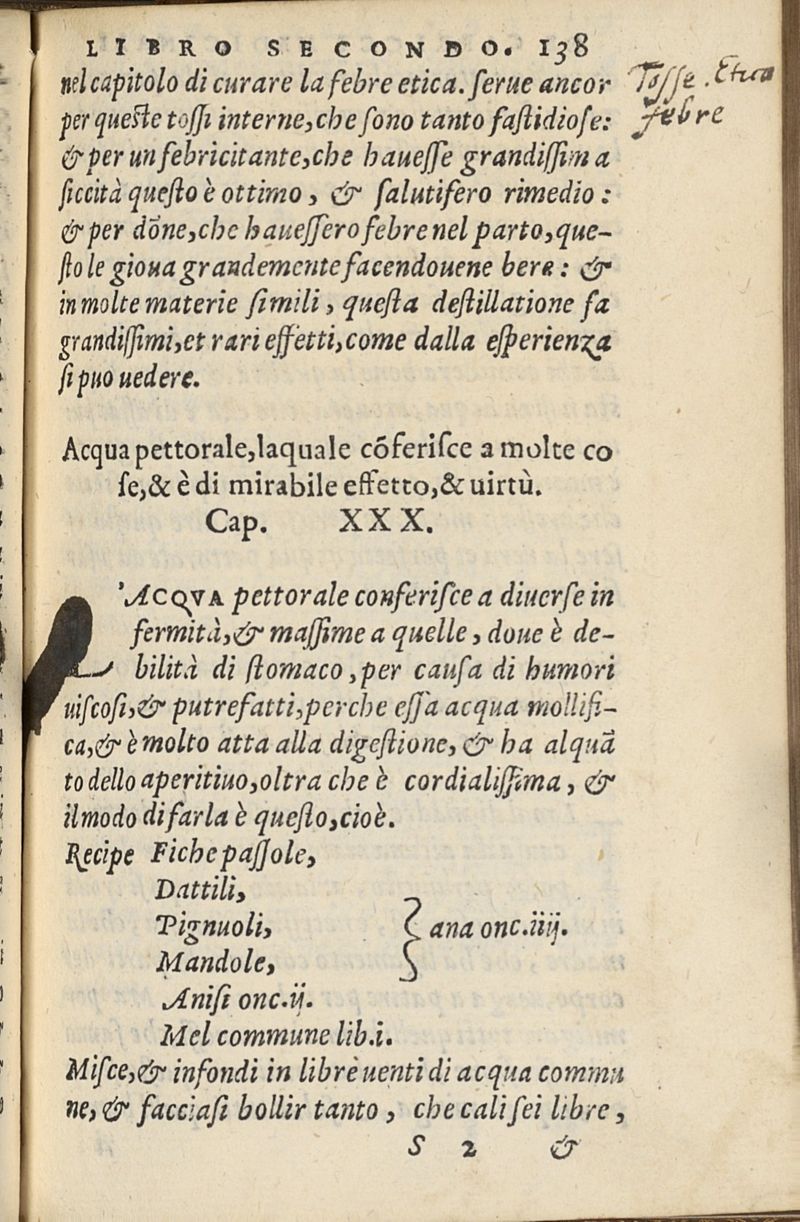 LIBRO SECONDO. 138
nel capitolo di curare la febre etica. ſerue ancor
per queſte toſſi interne, che ſono tanto faſtidioſe:
& per un febricitante, che haueſſe grandiſſima
ſiccità queſto è ottimo, & ſalutifero rimedio:
& per dōne, che haueſſero febre nel parto, que-
ſto le gioua grandemente facendouene bere: &
in molte materie ſimili, queſta deſtillatione fa
grandiſſimi, et rari effetti, come dalla eſperienza
ſi puo uedere.
Tosse. Etica
febre
Acqua pettorale, laquale cõferiſce a molte co
ſe, & è di mirabile effetto, & uirtù.
Cap. XXX.
'ACQVA pettorale conferiſce a diuerſe in
fermità, & maſſime a quelle, doue è de-
L bilità di ſtomaco, per cauſa di humori
uiſcoſi, & putrefatti, perche eſſa acqua mollifi-
ca, & è molto atta alla digeſtione, & ha alquā
to dello aperitiuo, oltra che è cordialiſſima, &
il modo di farla è queſto, cioè.
Recipe Fiche paſſole,
Dattili,
Pignuoli,
Mandole, } ana onc. iiij.
Aniſi onc. ij.
Mel commune lib. i.
Miſce, & infondi in librè uenti di acqua commu
ne, & facciaſi bollir tanto, che cali ſei libre,
S 2 &